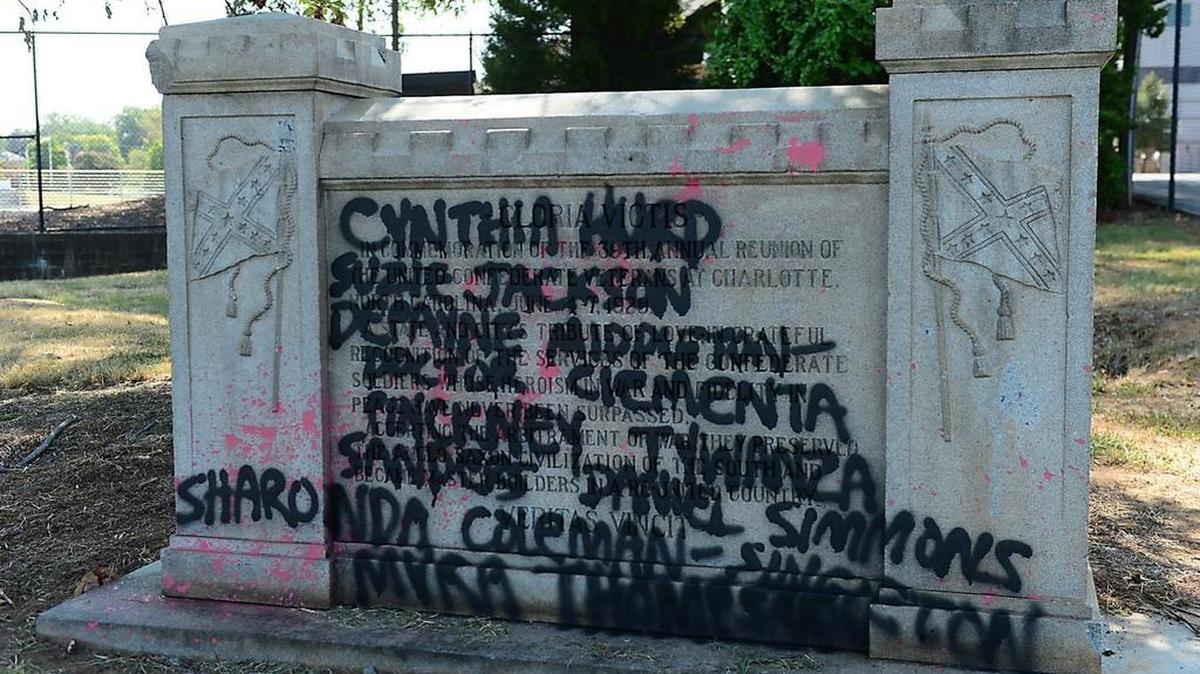 GLORIA VICTIS
IN COMMEMORATION OF THE 39TH ANNUAL REUNION OF
THE UNITED CONFEDERATE VETERANS AT CHARLOTTE,
NORTH CAROLINA, JUNE 4-7, 1929.
TRIBUTE OF LOVE IN GRATEFUL
RECOGNITION OF THE SERVICES OF THE CONFEDERATE
SOLDIERS WHOSE HEROISM IN WAR AND FIDELITY IN
PEACE HAVE NEVER BEEN SURPASSED.
ACCEPTING THE ARBITRAMENT OF WAR, THEY PRESERVED
THE ANGLO SAXON CIVILIZATION OF THE SOUTH AND
BECAME MASTER BUILDERS IN A REUNITED COUNTRY.
VERITAS VINCIT
CYNTHIA HURD
SUSIE JACKSON
DEPAYNE MIDDLETON-
CLEMENTA
PINCKNEY TYWANZA
SANDERS DANIEL SIMMONS
SHARONDA COLEMAN-SINGLETON
MYRA THOMPSON